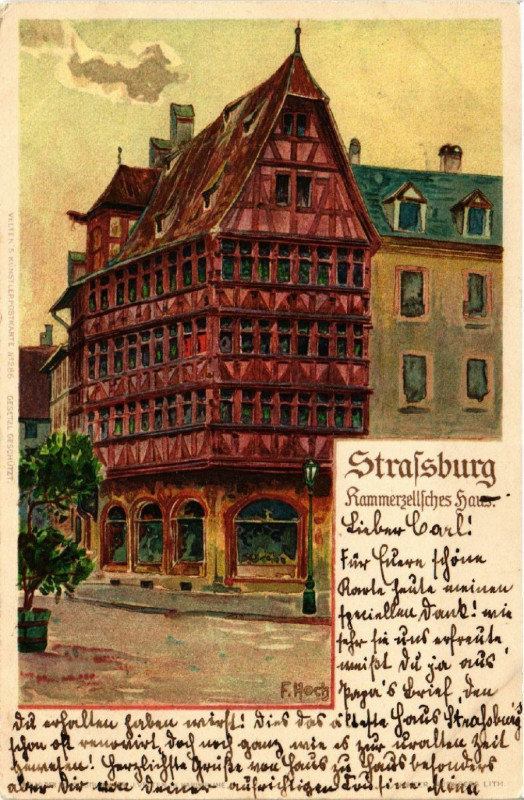 Strassburg
Kammerzellsches Haus.
Lieber Carl!
Für Euere schöne
Karte heute meinen
speziellen Dank! wie
sehr sie uns erfreute
weißt Du ja aus
Papa's Brief, den
du erhalten haben wirst! Dies das älteste Haus Straßburg's
schon oft renovirt, doch noch ganz wie es zur uralten Zeit
gewesen! Herzlichste Grüße von Haus zu Haus besonders
aber Dir von Deiner aufrichtigen Cousine
F. Hoch
VELTEN'S KÜNSTLERPOSTKARTE, No 286 GESETZL. GESCHÜTZT.
LITH